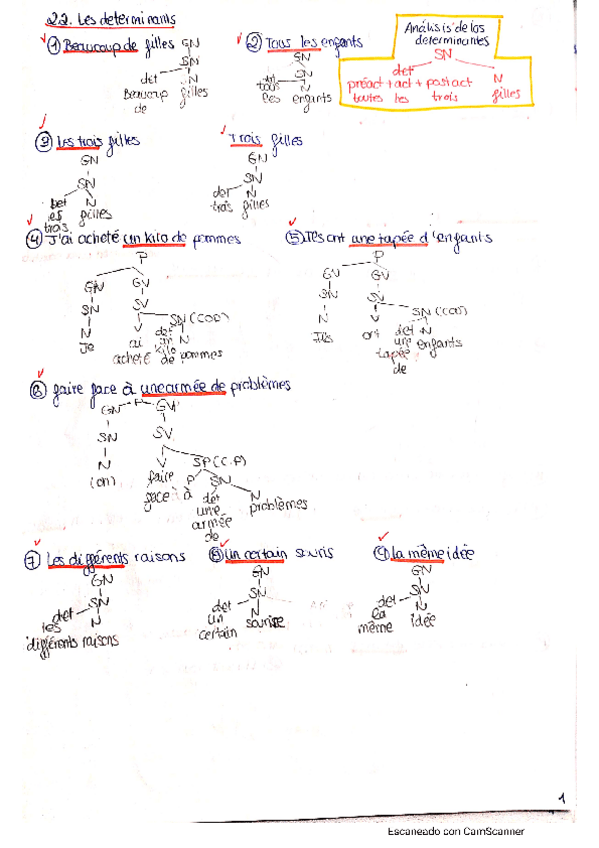 2.2. Les determinants
① Beaucoup de filles
GN
SN
det N
Beaucoup filles
de
② Tous les enfants
GN
SN
det N
tous
les enfants
Análisis de los
determinantes
SN
det N
préact + act + postact
toutes les trois filles
③ Les trois filles
GN
SN
Det N
les filles
trois
Trois filles
GN
SN
det N
trois filles
④ J'ai acheté un kilo de pommes
P
GN GV
SN SV
N V SN (COD)
Je ai det N
acheté un
kilo
de pommes
⑤ Ils ont une tapée d'enfants
P
GN GV
SN SV
N V SN (COD)
Ils ont det N
une enfants
tapée
de
⑥ faire face à une armée de problèmes
GN P GV
SN SV
N V SP (C.P)
(on) faire P SN
face à à det N
une problèmes
armée
de
⑦ Les différents raisons
GN
SN
det N
les
différents raisons
⑧ Un certain souris
GN
SN
det N
un sourise
certain
⑨ La même idée
GN
SN
det N
la
même idée
1
Escaneado con CamScanner